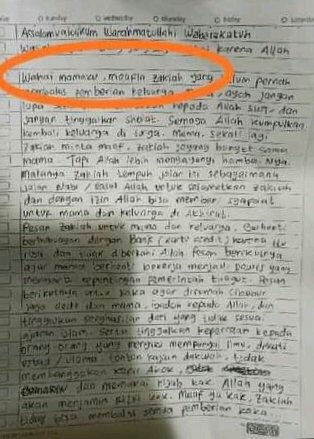 Sunday Wednesday Thursday Friday Saturday
Assalamualaikum Warahmatullahi Wabarakatuh
karena Allah
Wahai mamaku, maafin zakiah yang belum pernah
membalas pemberian keluarga ayah jangan
lupa kepada Allah SWT. dan
jangan tinggalkan sholat. Semoga Allah kumpulkan
kembali keluarga di surga. Mama, sekali lagi
Zakiah minta maaf. Zakiah sayang banget sama
mama. Tapi Allah lebih menyayangi hamba-Nya.
Makanya Zakiah tempuh jalan ini sebagaimana
jalan nabi / rasul Allah untuk selamatkan Zakiah
dan dengan izin Allah bisa memberi syafaat
untuk mama dan keluarga di akhirat.
Pesan Zakiah untuk mama dan keluarga. Berhenti
berhubungan dengan bank (kartu credit) karena itu
riba dan tidak diberkahi Allah. Pesan berikutnya
agar mama berhenti bekerja menjadi yang
membantu kepentingan pemerintah thogut. Pesan
berikutnya untuk kaka agar rumah Cibubur
jaga dede dan mama, ibadah kepada Allah, dan
tinggalkan penghasilan dari yang tidak sesuai
ajaran Islam. Serta tinggalkan kepercayaan kepada
orang-orang yang mengaku mempunyai ilmu, dekati
ustad / ulama tonton kajian dakwah, tidak
membanggakan kafir Ahok,
dan memakai hijab kak. Allah yang
akan menjamin rizki kak. Maaf ya kak, Zakiah
tidak bisa membalas semua pemberian kaka...